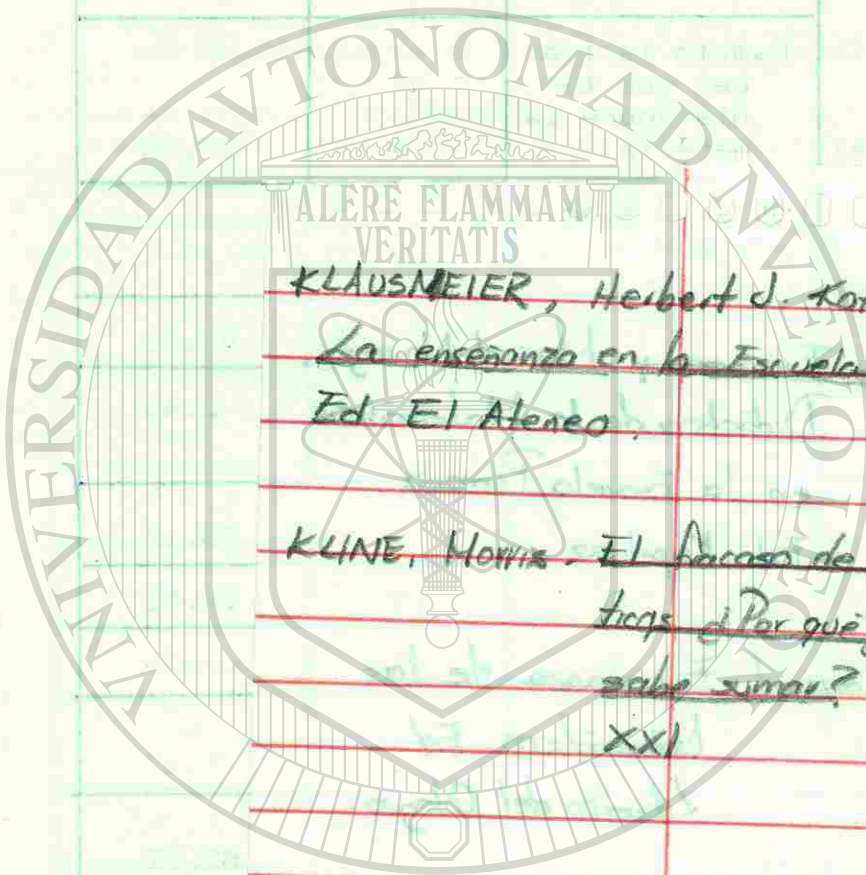 UNIVERSIDAD AVTONOMA D NVEVO LEON
ALERE FLAMMAM
VERITATIS
KLAUSMEIER, Herbert J.
La enseñanza en la Escuela
Ed. El Ateneo.
KLINE, Morris. El fracaso de
ticas ¿Por qué
sabe sumar?
XXI